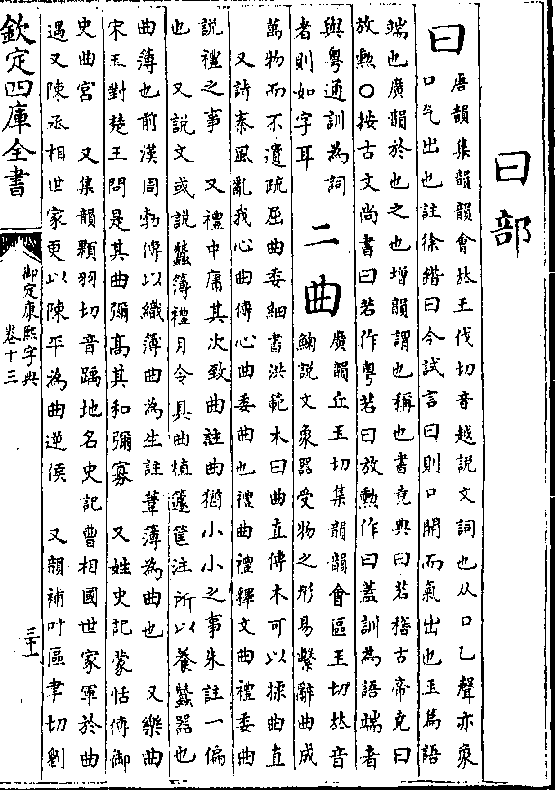 曰部
曰
唐韻集韻韻會𠀤王伐切音越説文詞也从口乙聲亦象
口气出也註徐鍇曰今試言曰則口開而氣出也玉篇語
端也廣韻於也之也增韻謂也稱也書堯典曰若稽古帝堯曰
放勲○按古文尚書曰若作粤若曰放勲作曰蓋訓為語端者
與粤通訓為詞
者則如字耳
二
曲
廣韻丘玉切集韻韻會區玉切𠀤音
説文象器受物之形易繫辭曲成
萬物而不遺疏屈曲委細書洪範木曰曲直傳木可以揉曲直
又詩秦風亂我心曲傳心曲委曲也禮曲禮釋文曲禮委曲
説禮之事 又禮中庸其次致曲註曲猶小小之事朱註一偏
也 又説文或説蠶簿禮月令具曲植籧筐注所以養蠶器也
曲薄也前漢周勃傳以織薄曲為生註葦薄為曲也 又樂曲
宋玉對楚王問是其曲彌髙其和彌寡 又姓史記蒙恬傳御
史曲宫 又集韻顆羽切音踽地名史記曹相國世家軍於曲
遇又陳丞相世家更以陳平為曲逆侯 又韻補叶區聿切劉
欽定四庫全書
御定康熙字典
卷十三
三十一